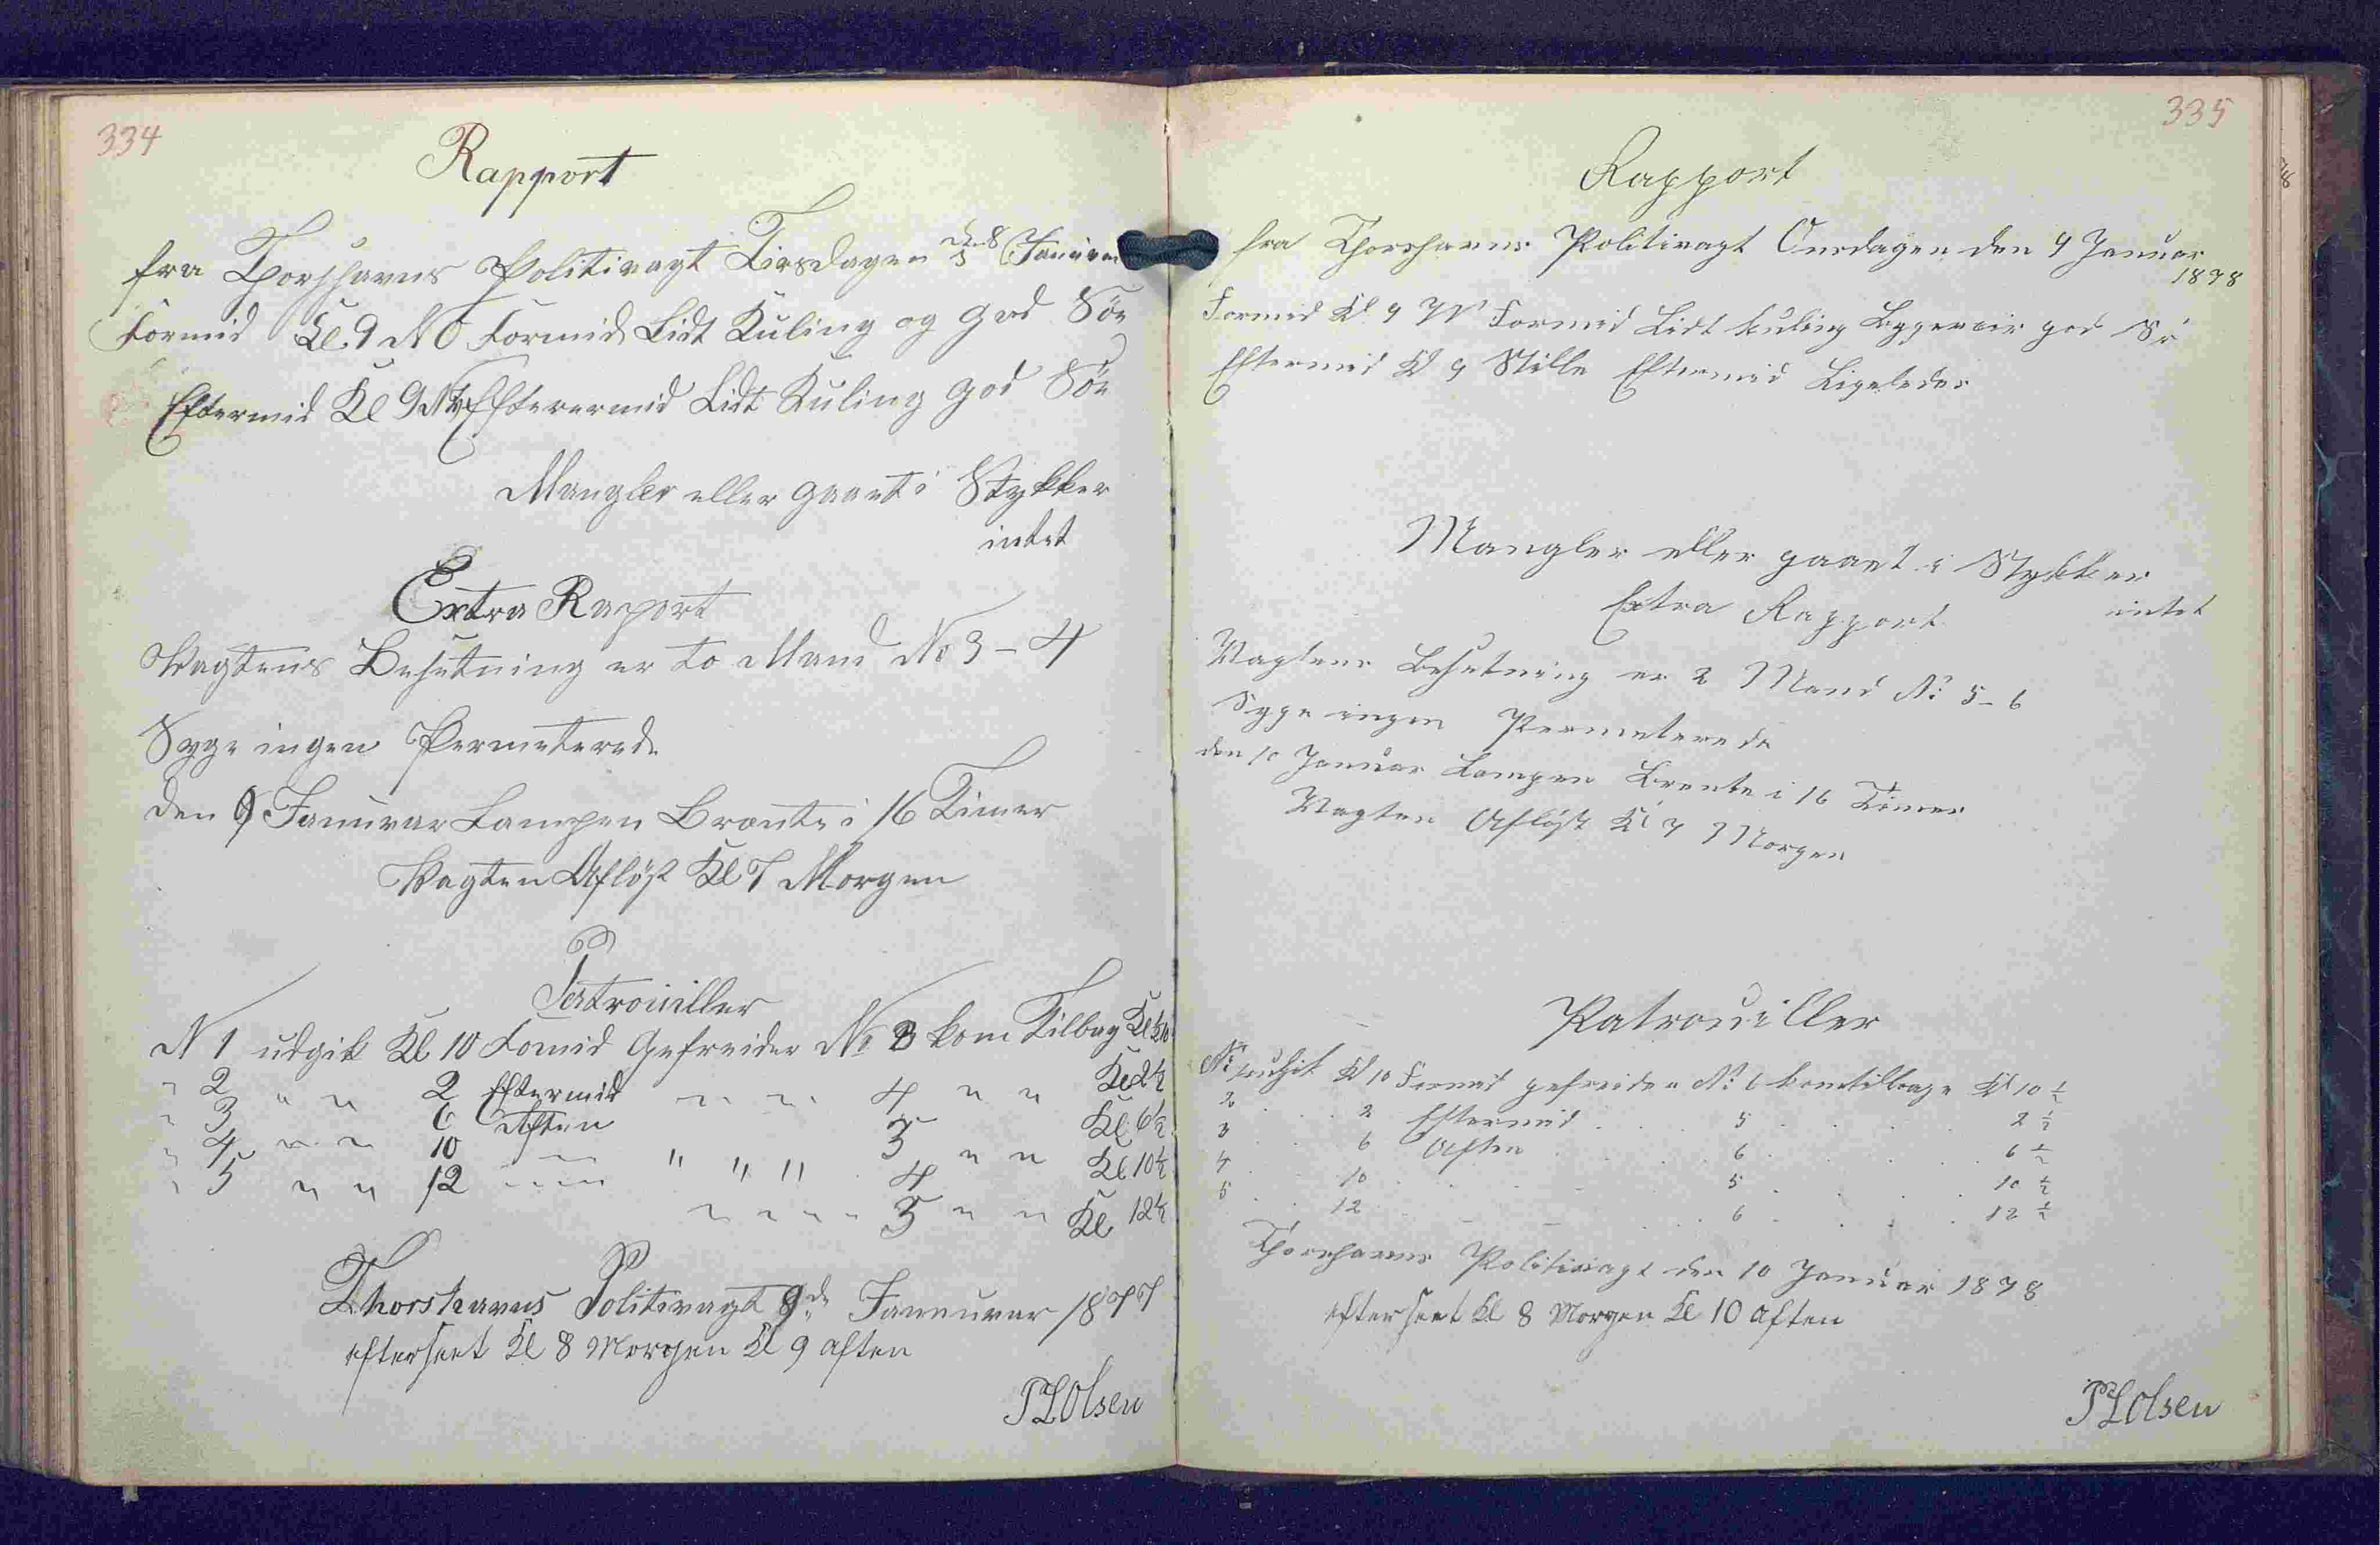 334
Rapport
fra Thorshavns Politivagt Tirsdagen d 8 Januvar
Formid Kl. 9 NO Formid Lidt Kuling og god Söe
Eftermid Kl 9 NV Efterermid Lidt Kuling god Söe
Mangler eller gaaet i Stykker
intet
Extra Raport
Vagtens Besetning er to Mand No 3-4
Syge ingen Permeterede
den 9 Januvar Lampen Brænte i 16 Timer
Vagten Aflöst Kl 7 Morgen
Patrouiller
N 1 udgik Kl 10 Formid Gefreider No 3 kom Tilbag Kl ½10
" 2 " " 2 Eftermid " " 4 " " Kl 2½
" 3 6 Aften 3 Kl. 6½
" 4 " " 10 " " " " 4 " " Kl. 10½
" 5 " " 12 " " " " 3 " " Kl 12½
Thorshavns Politivagt 9de Januvar 1877
efterseet Kl 8 Morgen Kl 9 aften
PLOlsen
335
Rapport
fra Thorshavns Politivagt Onsdagen den 9 Januar
1878
Formid Kl 9 W Formid Lidt kuling Byger god Sö
Eftermid Kl 9 Stille Eftermid Ligeledes
Mangler eller gaaet i Stykker
intet
Extra Rapport
Vagtens Besetning er 2 Mand No 5-6
Syge ingen Permeterede
den 10 Januar Lampen Brente i 16 Timer
Vagten Aflöst Kl 7 Morgen
Patrouiller
No 1 Kl 10 Formid gefreider No 6 kom tilbage Kl 10 ½
2 . . . 2 Eftermid . . . 5 . . . 2 ½
3 . . 6 Aften . . . 6 . . . 6 ½
4 . . 10 . . . 5 . . . 10 ½
5 . . 12 . . . 6 . . . 12 ½
Thorshavns Politivagt den 10 Januar 1878
efterseet Kl 8 Morgen Kl 10 aften
PLOlsen